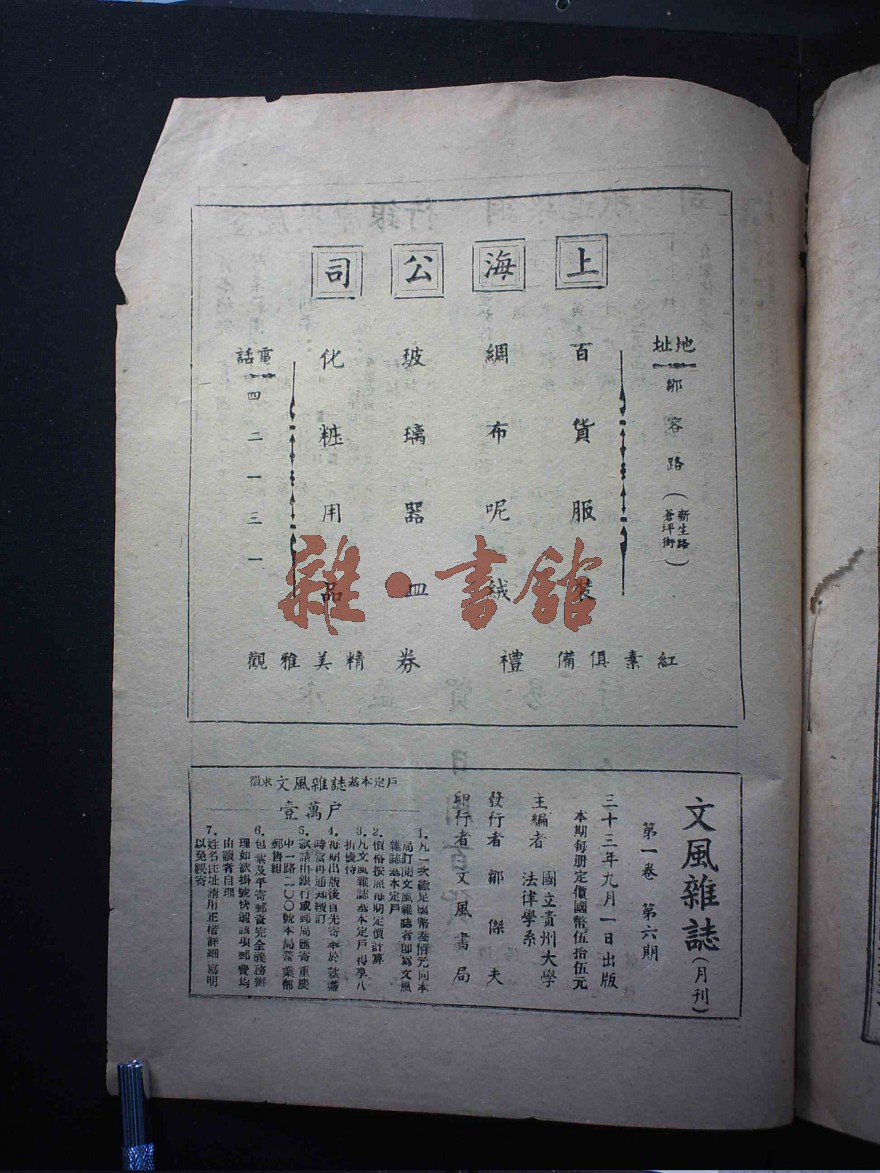 上海公司
地址
鄒容路（新生路蒼坪街）
百貨服裝
綢布呢絨
玻璃器皿
化粧用品
電話
四二一三一
紅素俱備
禮券
精美雅觀
雜·書館
文風雜誌（月刊）
第一卷 第六期
三十三年九月一日出版
本期每册定價國幣伍拾伍元
主編者 國立貴州大學法律學系
發行者 鄒傑夫
印行者 文風書局
徵求文風雜誌基本定戶
壹萬戶
1.凡一次繳足國幣叁佰元向本
局訂閱文風雜誌者卽爲文風
雜誌基本定戶
2.價格按照每期定價計算
3.凡文風雜誌基本定戶得享八
折優待
4.每期出版後首先寄奉於款盡
時當再通知續訂
5.款請由銀行或郵局匯寄重慶
中一路二〇〇號本局營業部
郵售組
6.包紮及平寄郵資完全義務辦
理如欲掛號快遞該項郵費均
由讀者自理
7.姓名住址請用正楷詳細寫明
以免誤寄